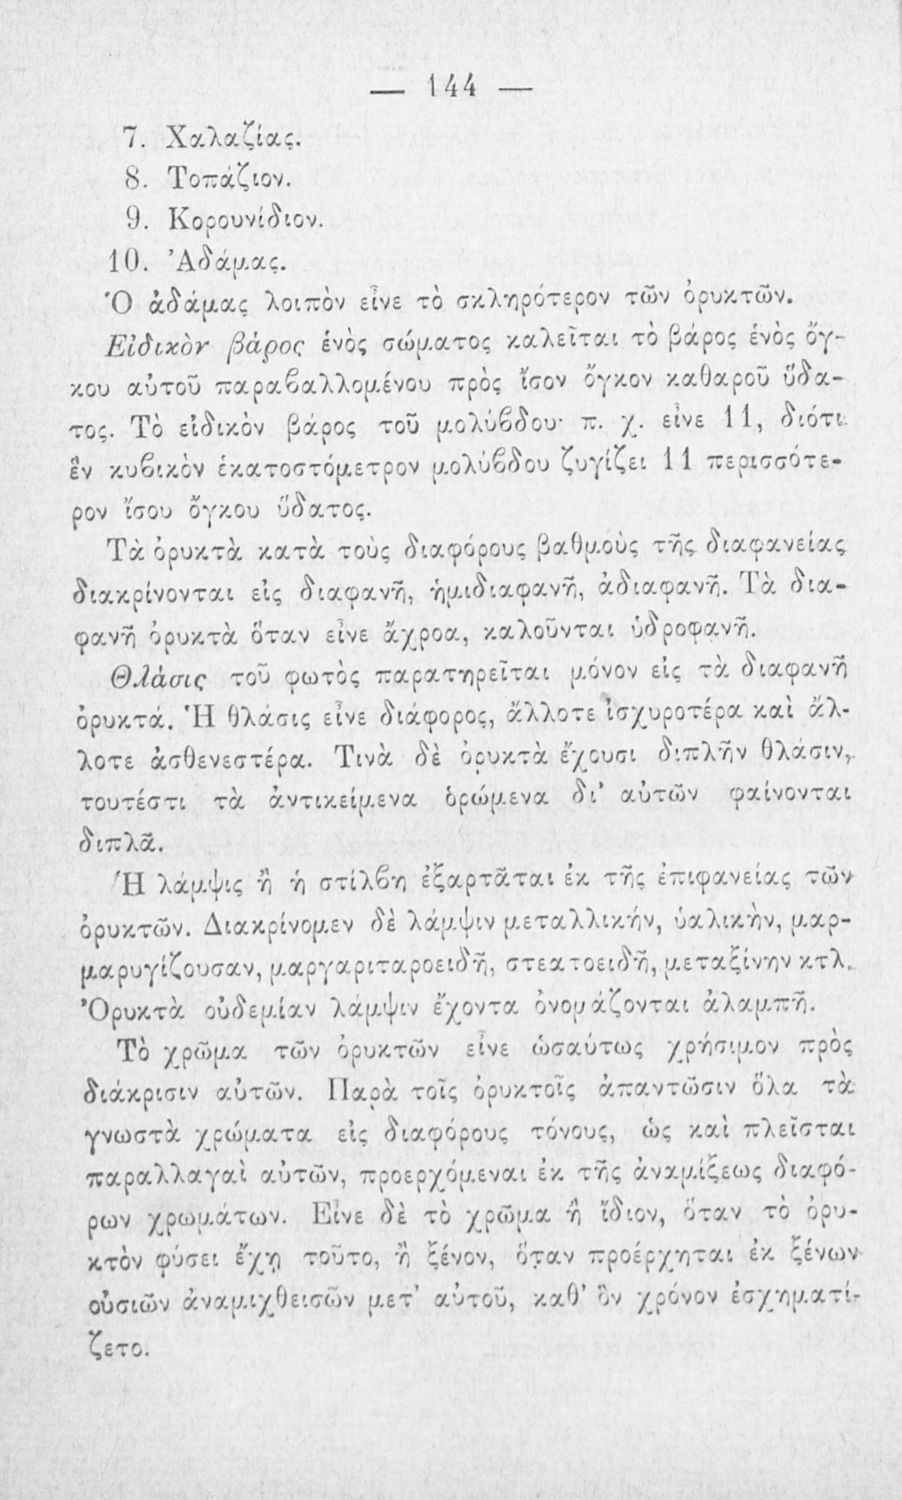 — 144 —
7. Χαλαζίας.
8. Τοπάζιον.
9. Κορουνίδιον.
10. Ἀδάμας.
Ὁ ἀδάμας λοιπὸν εἶνε τὸ σκληρότερον τῶν ὀρυκτῶν.
Εἰδικὸν βάρος ἑνὸς σώματος καλεῖται τὸ βάρος ἑνὸς ὄγ-
κου αὐτοῦ παραβαλλομένου πρὸς ἴσον ὄγκον καθαροῦ ὕδα-
τος. Τὸ εἰδικὸν βάρος τοῦ μολύβδου· π. χ. εἶνε 11, διότι
ἓν κυβικὸν ἑκατοστόμετρον μολύβδου ζυγίζει 11 περισσότε-
ρον ἴσου ὄγκου ὕδατος.
Τὰ ὀρυκτὰ κατὰ τοὺς διαφόρους βαθμοὺς τῆς διαφανείας
διακρίνονται εἰς διαφανῆ, ἡμιδιαφανῆ, ἀδιαφανῆ. Τὰ δια-
φανῆ ὀρυκτὰ ὅταν εἶνε ἄχροα, καλοῦνται ὑδροφανῆ.
Θλάσις τοῦ φωτὸς παρατηρεῖται μόνον εἰς τὰ διαφανῆ
ὀρυκτά. Ἡ θλάσις εἶνε διάφορος, ἄλλοτε ἰσχυροτέρα καὶ ἄλ-
λοτε ἀσθενεστέρα. Τινὰ δὲ ὀρυκτὰ ἔχουσι διπλῆν θλάσιν,
τουτέστι τὰ ἀντικείμενα ὁρώμενα δι' αὐτῶν φαίνονται
διπλᾶ.
Ἡ λάμψις ἢ ἡ στίλβη ἐξαρτᾶται ἐκ τῆς ἐπιφανείας τῶν
ὀρυκτῶν. Διακρίνομεν δὲ λάμψιν μεταλλικήν, ὑαλικὴν, μαρ-
μαρυγίζουσαν, μαργαριταροειδῆ, στεατοειδῆ, μεταξίνην κτλ.
Ὀρυκτὰ οὐδεμίαν λάμψιν ἔχοντα ὀνομάζονται ἀλαμπῆ.
Τὸ χρῶμα τῶν ὀρυκτῶν εἶνε ὡσαύτως χρήσιμον πρὸς
διάκρισιν αὐτῶν. Παρὰ τοῖς ὀρυκτοῖς ἀπαντῶσιν ὅλα τὰ
γνωστὰ χρώματα εἰς διαφόρους τόνους, ὡς καὶ πλεῖσται
παραλλαγαὶ αὐτῶν, προερχόμεναι ἐκ τῆς ἀναμίξεως διαφό-
ρων χρωμάτων. Εἶνε δὲ τὸ χρῶμα ἢ ἴδιον, ὅταν τὸ ὀρυ-
κτὸν φύσει ἔχῃ τοῦτο, ἢ ξένον, ὅταν προέρχηται ἐκ ξένων
οὐσιῶν ἀναμιχθεισῶν μετ' αὐτοῦ, καθ' ὃν χρόνον ἐσχηματί-
ζετο.